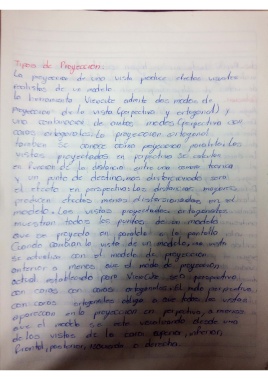 Tipos de Proyección.
La proyección de una vista produce efectos visuales
realistas de un modelo
La herramienta Viewcube admite dos modos de
proyección de la vista (perspectiva y ortogonal) y
una combinación de ambos modos (perspectiva con
caras ortogonales) La proyección ortogonal
también se conoce como proyección paralela, las
vistas proyectadas en perspectiva se calculan
en función de la distancia entre una cámara teórica
y punto de destino, mas distorsionado será
el efecto en perspectiva las distancias mayores
producen efectos menos distorsionados en el
modelo. Las vistas proyectadas ortogonales
muestran todos los puntos de un modelo
que se proyecta en paralelo a la pantalla
Cuando cambia la vista de un modelo, una vista
se actualiza con el modo de proyección
anterior a menos que el modo de proyección
actual establecido para Viewcube sea perspectiva
con caras con caras ortogonales. El modo perspectiva
con caras ortogonales obliga a que todas las vistas
aparezcan en la proyección en perspectiva, a menos
que el modelo se este visualizando desde una
de las vistas de la cara superior, inferior,
frontal, posterior, izquierda o derecha